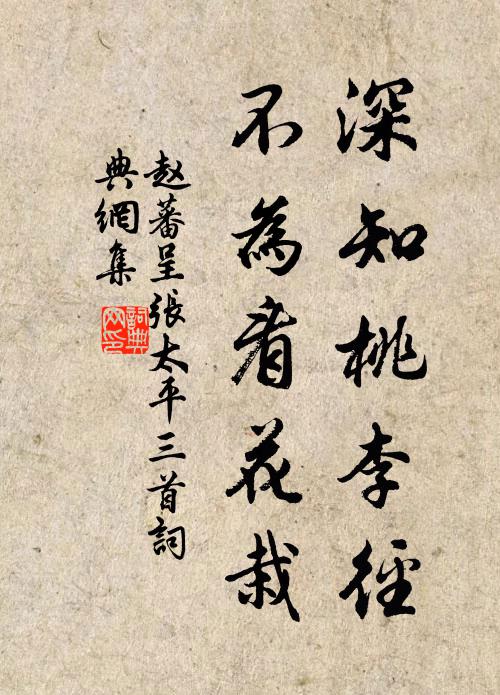 深知桃李徑
不為看花栽
赵蕃呈張太平三首詞
典網集
詞典
网印